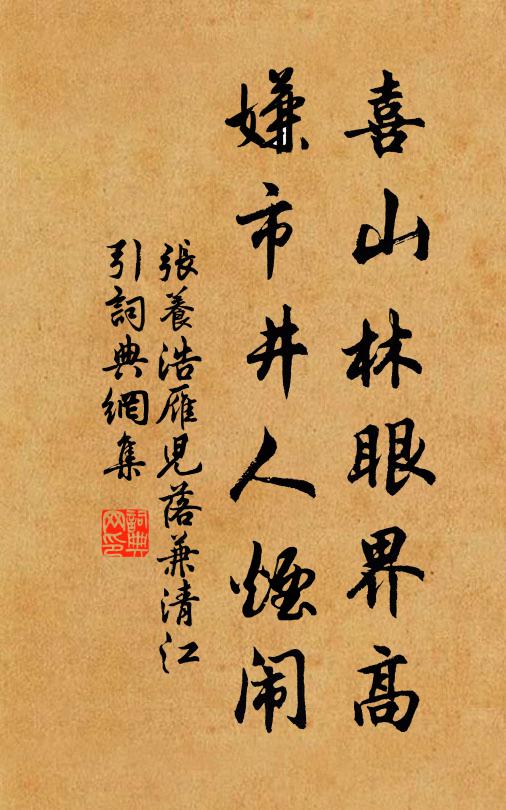 喜山林眼界高
嫌市井人煙闹
張養浩雁児落兼清江
引詞典網集
詞典网印